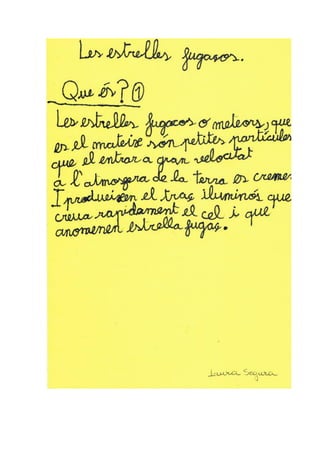 Les estrelles fugaços.
Que és? 1
Les estrelles fugacos o meteors, que
es el mateix són petites partícules
que el entrar a gran velocitat
a l'atmosfera de la terra es cremen
I produeixen el traç iluminós que
creua rapidament el cel i que
anomenen estrella fugaç.
Laura Segura